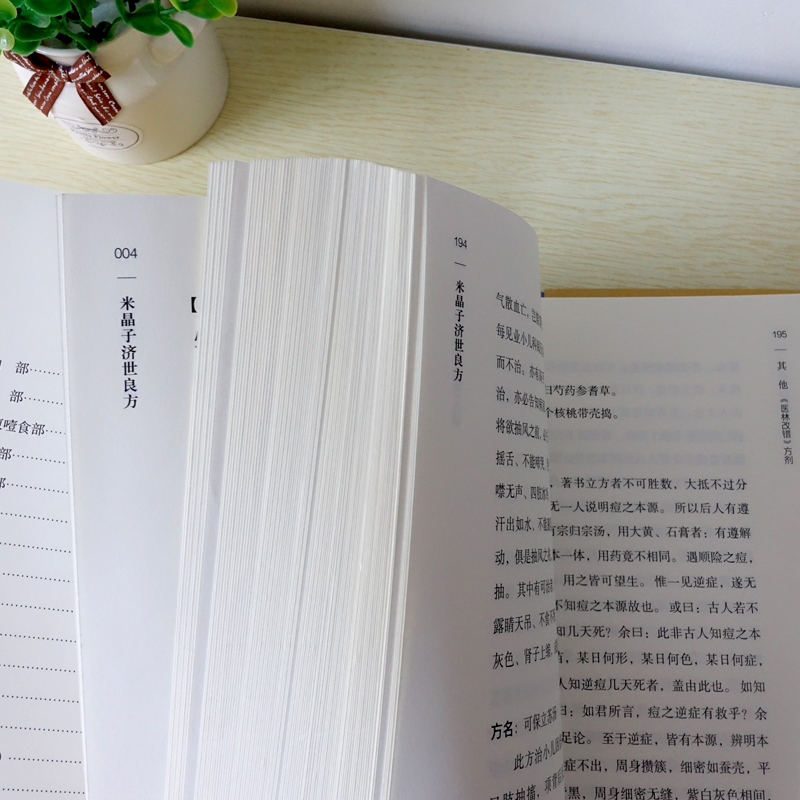 部……
部……
噎食部…
部……
部……
004
米晶子济世良方
【
194
米晶子济世良方
气散血亡，
每见业小儿科
而不治。亦有
治，亦必告知
将欲抽风之前，
摇舌、不能啼哭、
噤无声、四肢
汗出如水、不
动，俱是抽风之
抽。其中有可治
露睛天吊、不食
灰色、肾子上
方名：可保立苏汤
此方治小儿
四肢抽搐，项背
195
其他《医林改错》方剂
曰芍药参耆草。
个核桃带壳捣。
，著书立方者不可胜数，大抵不过分
无一人说明痘之本源。所以后人有遵
有宗归宗汤，用大黄、石膏者；有遵解
本一体，用药竟不相同。遇顺险之痘，
，用之皆可望生。惟一见逆症，遂无
不知痘之本源故也。或曰：古人若不
知几天死？余曰：此非古人知痘之本
苗，某日何形，某日何色，某日何症，
人知逆痘几天死者，盖由此也。如知
曰：如君所言，痘之逆症有救乎？余
足论。至于逆症，皆有本源，辨明本
症不出，周身攒簇，细密如蚕壳，平
黑，周身细密无缝，紫白灰色相间，